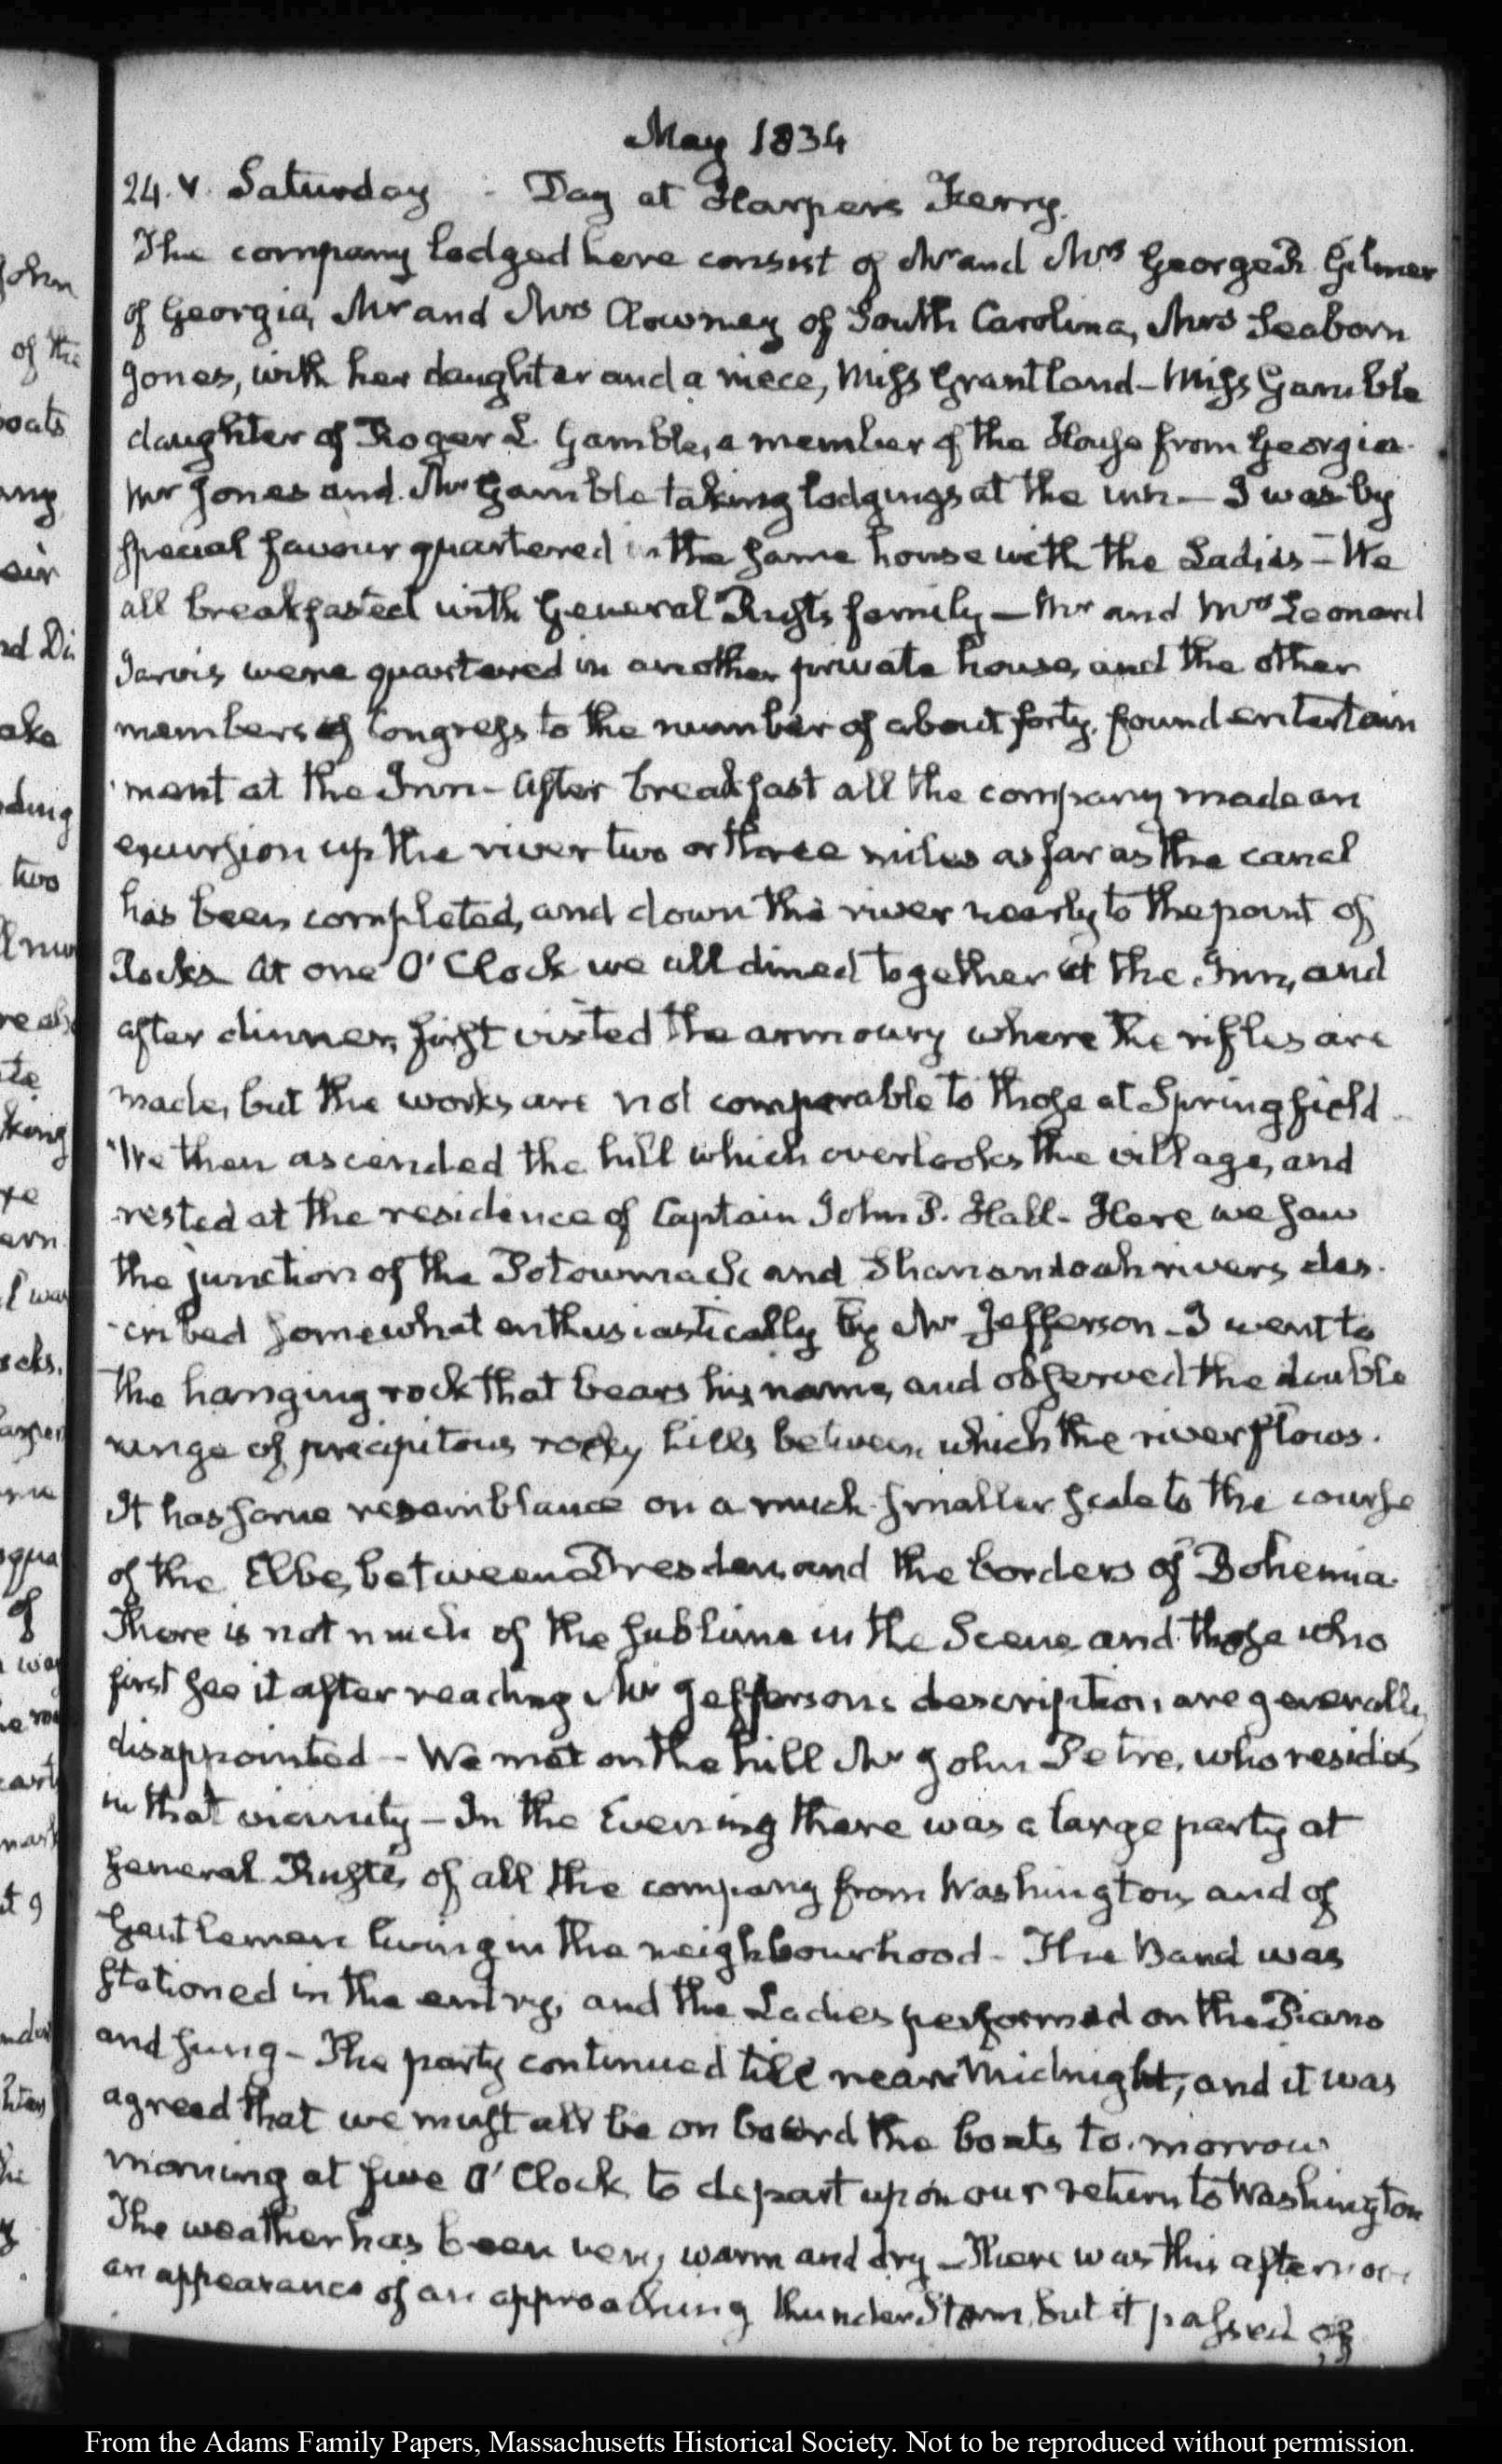 May 1834
24. V. Saturday - Day at Harpers Ferry.
The company lodged here consist of Mr and Mrs George R. Gilmer
of Georgia, Mr and Mrs Clowney of South Carolina, Mrs Seaborn
Jones, with her daughter and a niece, Miss Grantland — Miss Gamble
daughter of Roger L. Gamble, a member of the House from Georgia.
Mr Jones and Mr Gamble taking lodgings at the inn — I was by
special favour quartered in the same house with the Ladies — We
all breakfasted with General Rusts family — Mr and Mrs Leonard
Jarvis were quartered in another private house, and the other
members of Congress to the number of about forty, found entertain
ment at the Inn — After breakfast all the company made an
excursion up the river two or three miles as far as the canal
has been completed, and down the river nearly to the point of
Rocks. At one O'Clock we all dined together at the Inn, and
after dinner, first visited the armoury where the rifles are
made, but the works are not comparable to those at Springfield
We then ascended the hill which overlooks the village, and
rested at the residence of Captain John P. Hall - Here we saw
the junction of the Potowmack and Shanondoah rivers, des-
-cribed somewhat enthusiastically by Mr Jefferson - I went to
the hanging rock that bears his name, and observed the double
range of precipitous rocky hills between which the river flows.
It has some resemblance on a much smaller scale to the course
of the Elbe, between Dresden and the borders of Bohemia.
There is not much of the sublime in the Scene and those who
first see it after reading Mr Jeffersons description, are generally
disappointed — We met on the hill Mr John Petre, who resides
in that vicinity — In the Evening there was a large party at
General Rusts, of all the company from Washington, and of
Gentlemen living in the neighbourhood - The Band was
stationed in the entry, and the Ladies performed on the Piano
and sung - The party continued till near Midnight, and it was
agreed that we must all be on board the boats to-morrow
morning at five O'Clock to depart upon our return to Washington
The weather has been very warm and dry — There was this afternoon
an appearance of an approaching thunder Storm, but it passed off
From the Adams Family Papers, Massachusetts Historical Society. Not to be reproduced without permission.